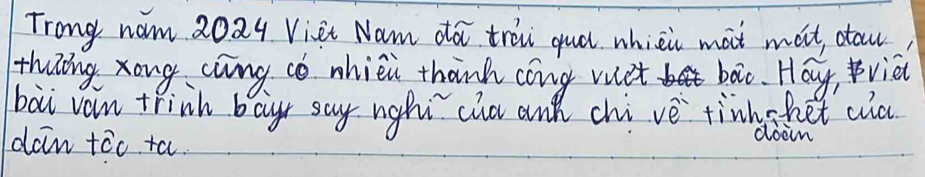 Trong năm 2024 Việt Nam đã trải qua nhiều mất mát, đau
thương xong cũng có nhiều thành công vượt bậc. Hãy, viết
bài văn trình bày suy nghĩ của anh chị về tinh thần đoàn kết của
dân tộc ta.